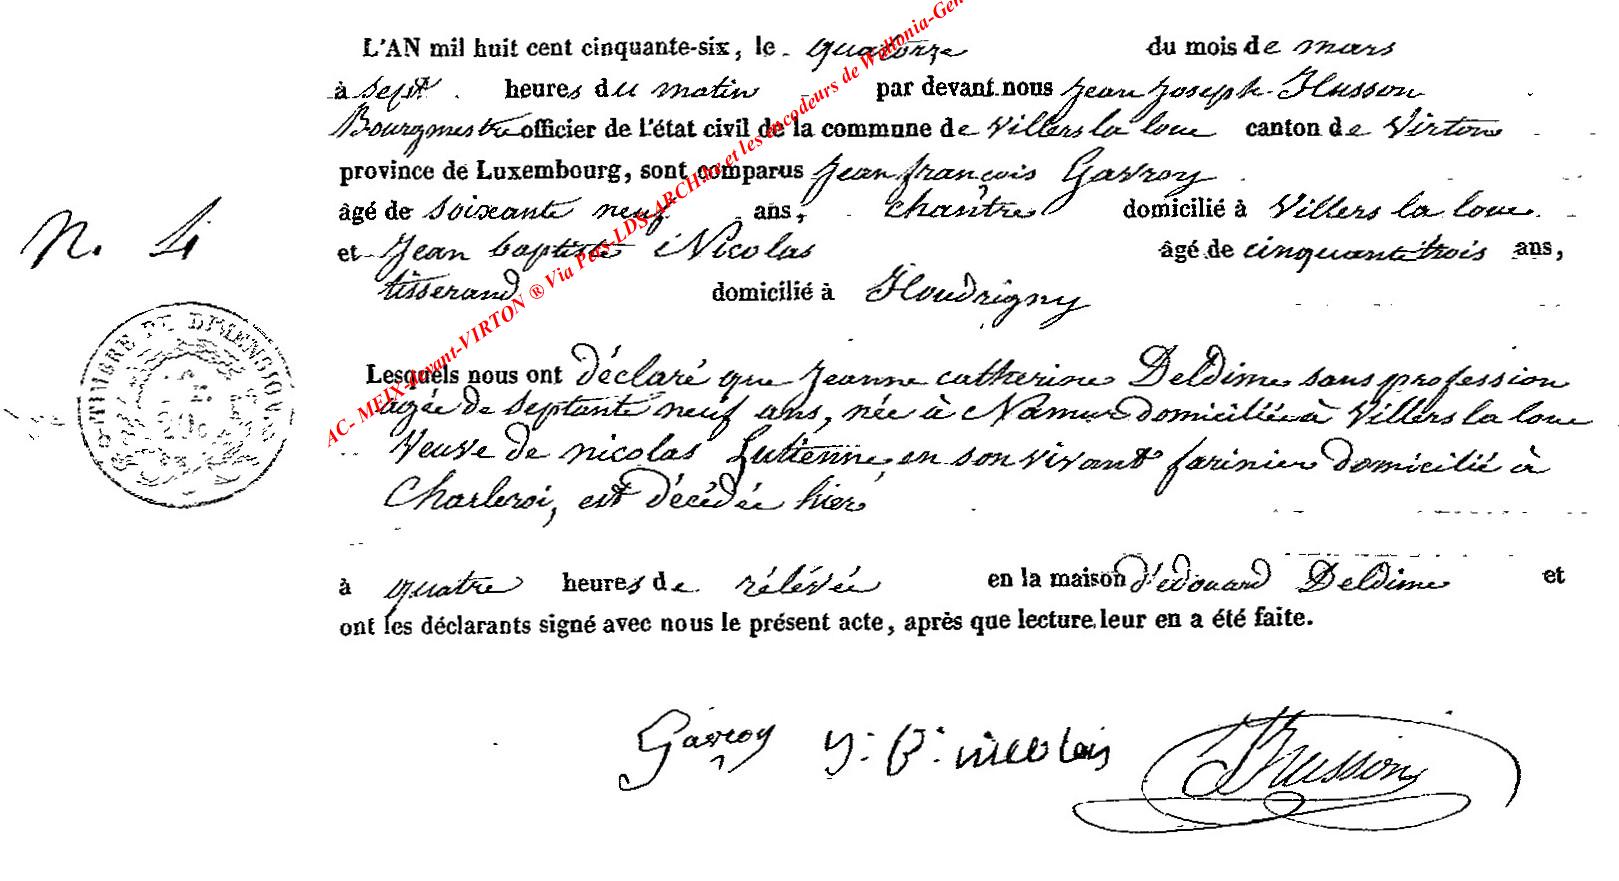 L'AN mil huit cent cinquante-six, le quatorze du mois de mars
à sept heures du matin par devant nous jean joseph Husson
Bourgmestre officier de l'état civil de la commune de Villers la loue canton de Virton
province de Luxembourg, sont comparus jean françois Gavroy
âgé de soixante neuf ans, chantre domicilié à Villers la loue
N. 4
et jean baptiste Nicolas âgé de cinquante trois ans,
tisserand domicilié à Houdrigny
TIMBRE DE DIMENSION
Lesquels nous ont déclaré que jeanne catherine Deldime sans profession
agée de septante neuf ans, née à Namur domiciliée à Villers la loue
Veuve de nicolas Lutienne, en son vivant farinier domicilié à
Charleroi, est décédée hier
à quatre heures de rélévée en la maison d'édouard Deldime et
ont les déclarants signé avec nous le présent acte, après que lecture leur en a été faite.
Gavroy J. B. nicolas JHusson
AC- MEIX-devant-VIRTON ® Via Pers-LDS-ARCH.be et les encodeurs de Wallonia-Gen